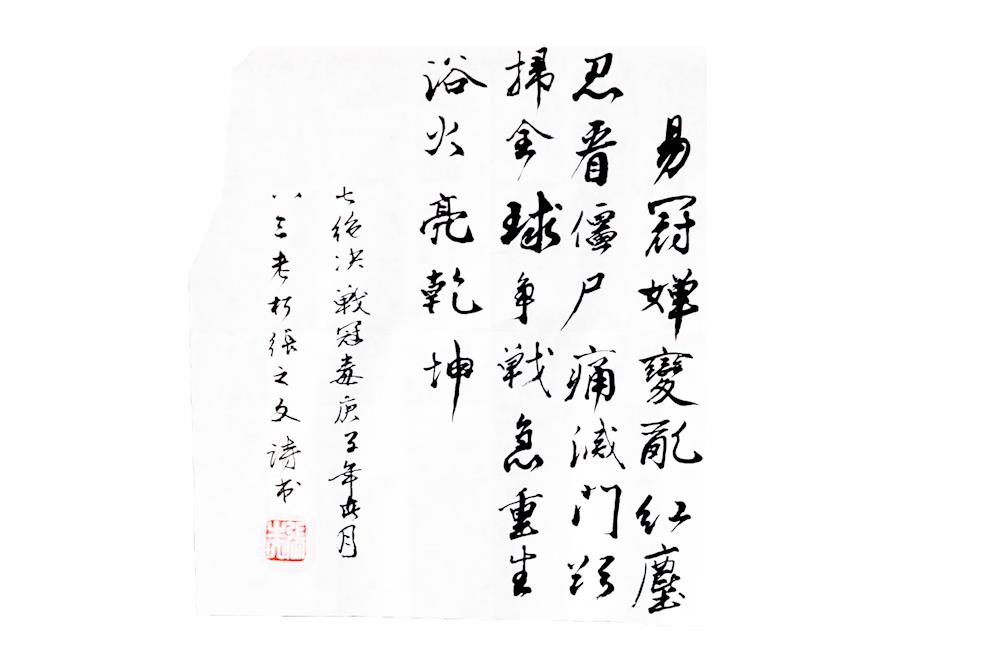 易冠嬋變亂紅塵
忍看僵尸痛滅門
掃全球争戰急重生
浴火亮乾坤
七絕决戰冠毒庚子年月
八三老朽張之文詩书